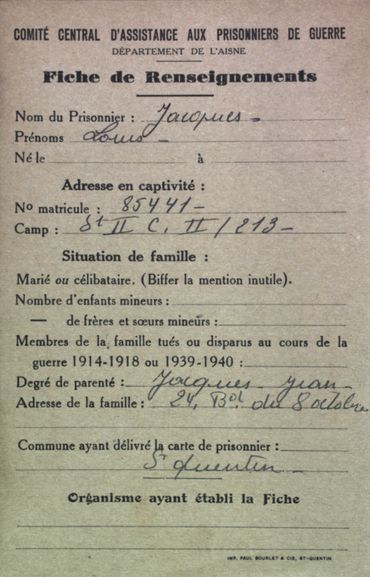 COMITÉ CENTRAL D'ASSISTANCE AUX PRISONNIERS DE GUERRE
DÉPARTEMENT DE L'AISNE
Fiche de Renseignements
Nom du Prisonnier : Jacques
Prénoms Louis
Né le à
Adresse en captivité :
No matricule : 85441
Camp : St II C. II / 213
Situation de famille :
Marié ou célibataire. (Biffer la mention inutile).
Nombre d'enfants mineurs :
— de frères et sœurs mineurs :
Membres de la famille tués ou disparus au cours de la
guerre 1914-1918 ou 1939-1940 :
Degré de parenté : Jacques Jean
Adresse de la famille : 24, Bd. du 8 octobre
Commune ayant délivré la carte de prisonnier :
St Quentin
Organisme ayant établi la Fiche
IMP. PAUL BOURLET & CIE, ST-QUENTIN